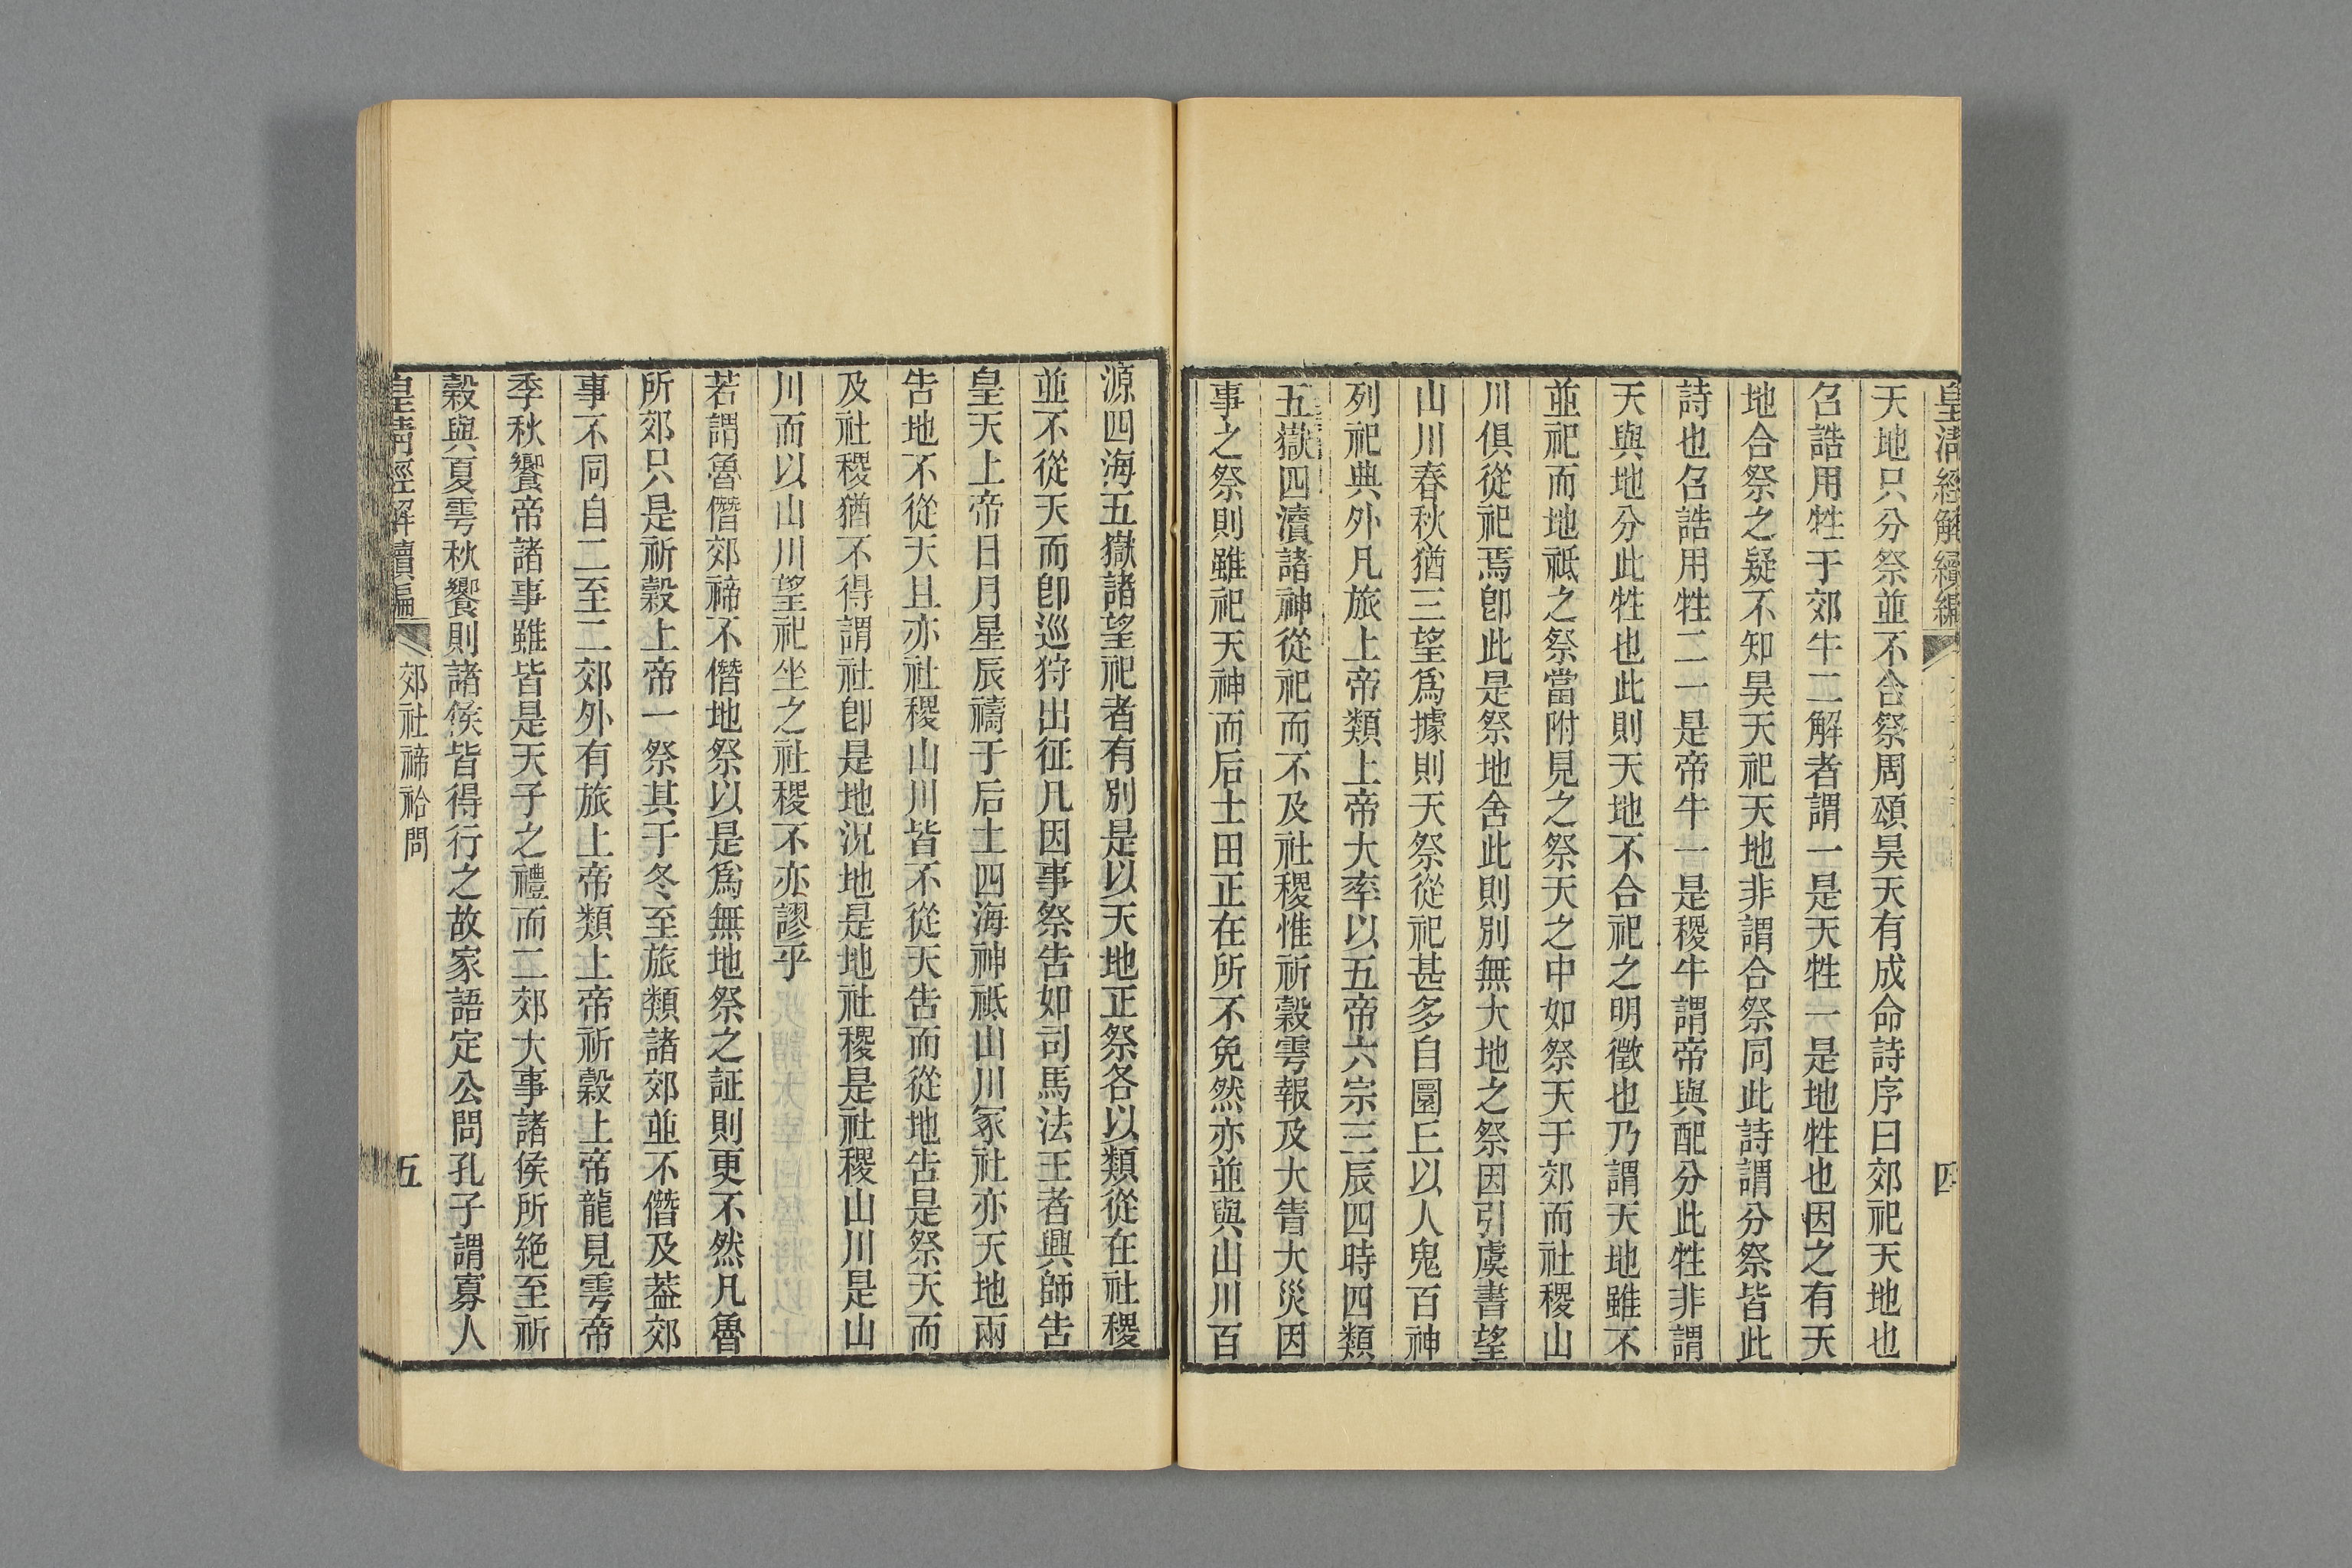 皇清經解續編 四
天地只分祭並不合祭周頌昊天有成命詩序曰郊祀天地也
召誥用牲于郊牛二解者謂一是天牲一是地牲也因之有天
地合祭之疑不知昊天祀天地非謂合祭同此詩謂分祭皆此
詩也召誥用牲二一是帝牛一是稷牛謂帝與配分此牲非謂
天與地分此牲也此則天地不合祀之明徵也乃謂天地雖不
並祀而地祗之祭當附見之祭天之中如祭天于郊而社稷山
川俱從祀焉卽此是祭地舍此則別無大地之祭因引虞書望
山川春秋猶三望爲據則天祭從祀甚多自圜丘以人鬼百神
列祀典外凡旅上帝類上帝大率以五帝六宗三辰四時四類
五嶽四瀆諸神從祀而不及社稷惟祈穀雩報及大眚大災因
事之祭則雖祀天神而后土田正在所不免然亦並與山川百
源四海五嶽諸望祀者有別是以天地正祭各以類從在社稷
並不從天而卽巡狩出征凡因事祭告如司馬法王者興師告
皇天上帝日月星辰禱于后土四海神祗山川冢社亦天地兩
告地不從天且亦社稷山川皆不從天告而從地告是祭天而
及社稷猶不得謂社卽是地況地是地社稷是社稷山川是山
川而以山川望祀坐之社稷不亦謬乎
若謂魯僭郊禘不僭地祭以是爲無地祭之証則更不然凡魯
所郊只是祈穀上帝一祭其于冬至旅類諸郊並不僭及葢郊
事不同自二至二郊外有旅上帝類上帝祈穀上帝龍見雩帝
季秋饗帝諸事雖皆是天子之禮而二郊大事諸侯所絕至祈
穀與夏雩秋饗則諸侯皆得行之故家語定公問孔子謂寡人
皇清經解續編 郊社禘祫問 五